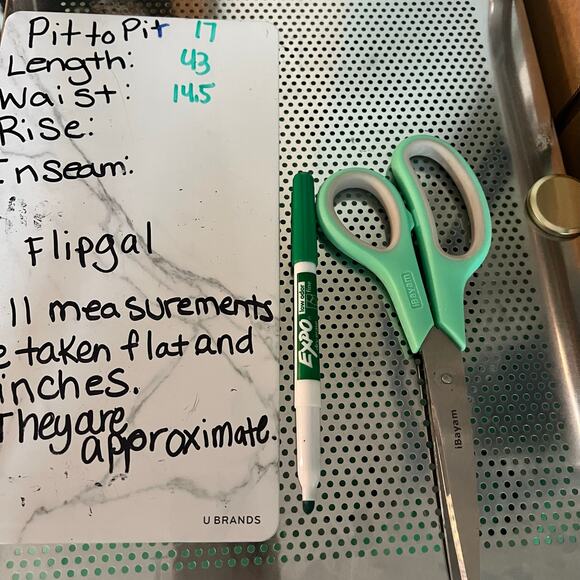 Pit to Pit 17
Length: 43
Waist: 14.5
Rise:
Inseam:
Flipgal
ll measurements
e taken flat and
inches.
They are
approximate.
U BRANDS
EXPO
low odor
fine
iBayam
iBayam